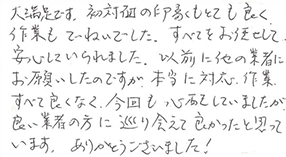 大満足です。初対面の印象もとても良く、
作業もていねいでした。すべてをお任せして
安心していられました。以前に他の業者に
お願いしたのですが、本当に対応、作業、
すべて良くなく、今回も心配していましたが
良い業者の方に巡り会えて良かったと思って
います。ありがとうございました！